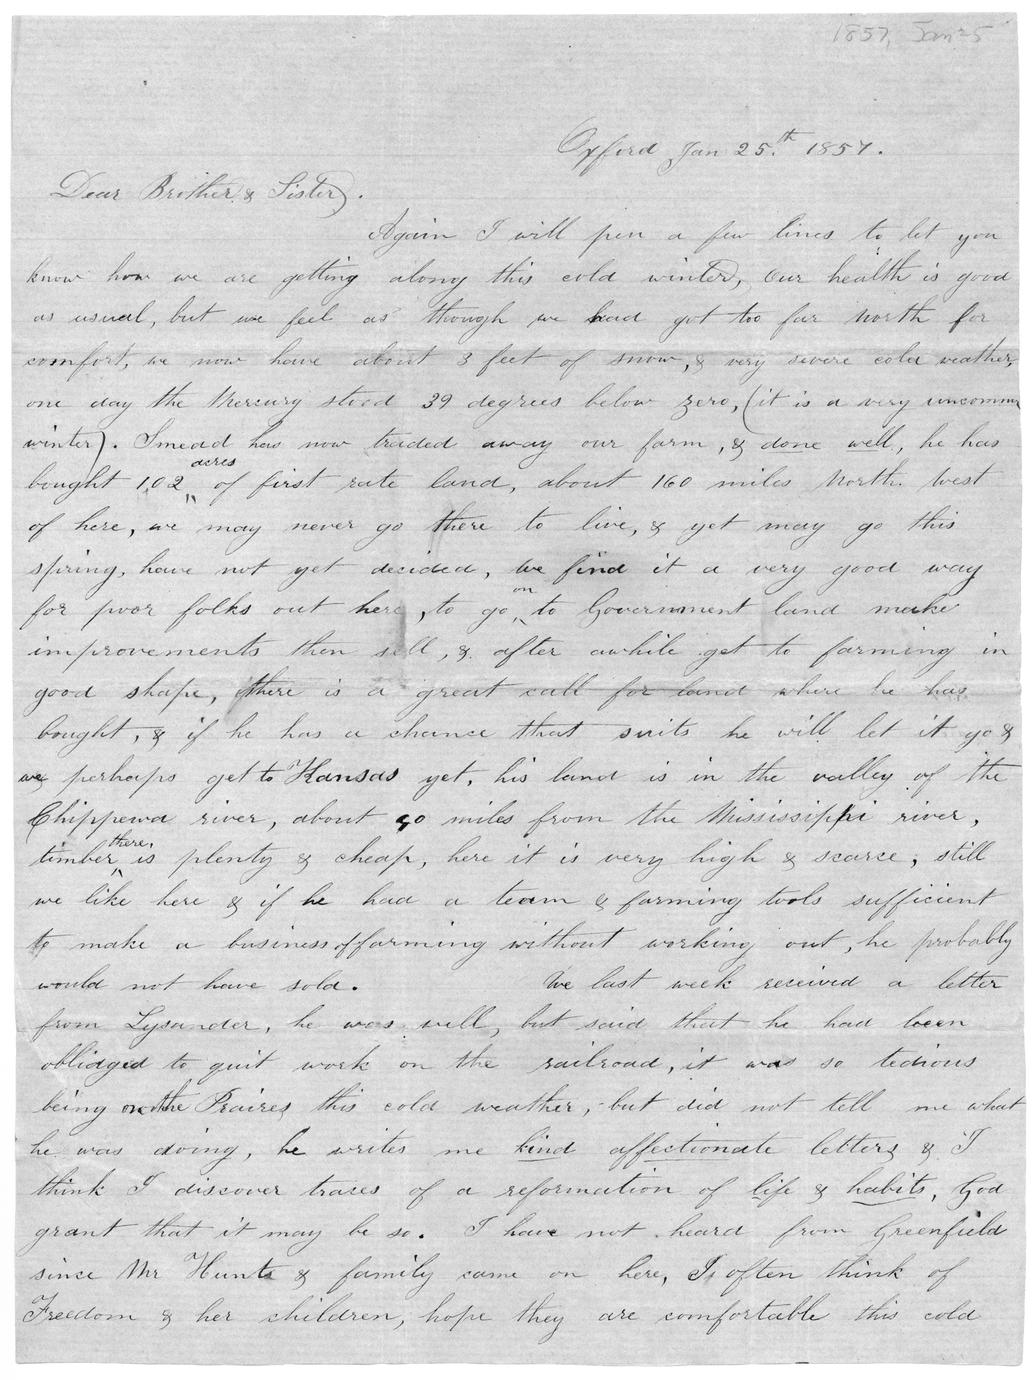 1857, Jan 25
Oxford Jan 25.th 1857.
Dear Brother & Sister.
Again I will pen a few lines to let you
know how we are getting along this cold winter, Our health is good
as usual, but we feel as though we had got too far North for
comfort, we now have about 3 feet of snow, & very severe cold weather,
one day the Mercury stood 39 degrees below zero, (it is a very uncommon
winter). Smead has now traded away our farm, & done well, he has
bought 102 acres of first rate land, about 160 miles North. West
of here, we may never go there to live, & yet may go this
spring, have not yet decided, we find it a very good way
for poor folks out here, to go on to Government land make
improvements then sell, & after awhile get to farming in
good shape, there is a great call for land where he has
bought, & if he has a chance that suits he will let it go &
we perhaps get to Kansas yet, his land is in the valley of the
Chippewa river, about miles from the Mississippi river,
timber there, is plenty & cheap, here it is very high & scarce; still
we like here & if he had a team & farming tools sufficient
to make a business of farming without working out, he probably
would not have sold. We last week received a letter
from Lysander, he was well, but said that he had been
oblidged to quit work on the railroad, it was so tedious
being on the Praires this cold weather, but did not tell me what
he was doing, he writes me kind affectionate letters & I
think I discover traces of a reformation of life & habits, God
grant that it may be so. I have not heard from Greenfield
since Mr Hunts & family came on here, I often think of
Freedom & her children, hope they are comfortable this cold